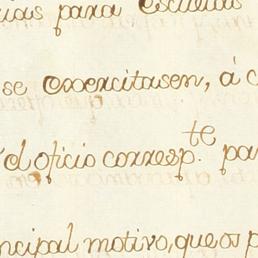 para escuelas
se exercitasen, á
el oficio corresp.te pa
ncipal motivo, que os p